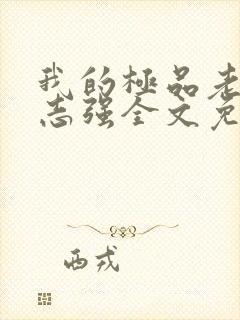 我的極品老
志强全文免
西戎